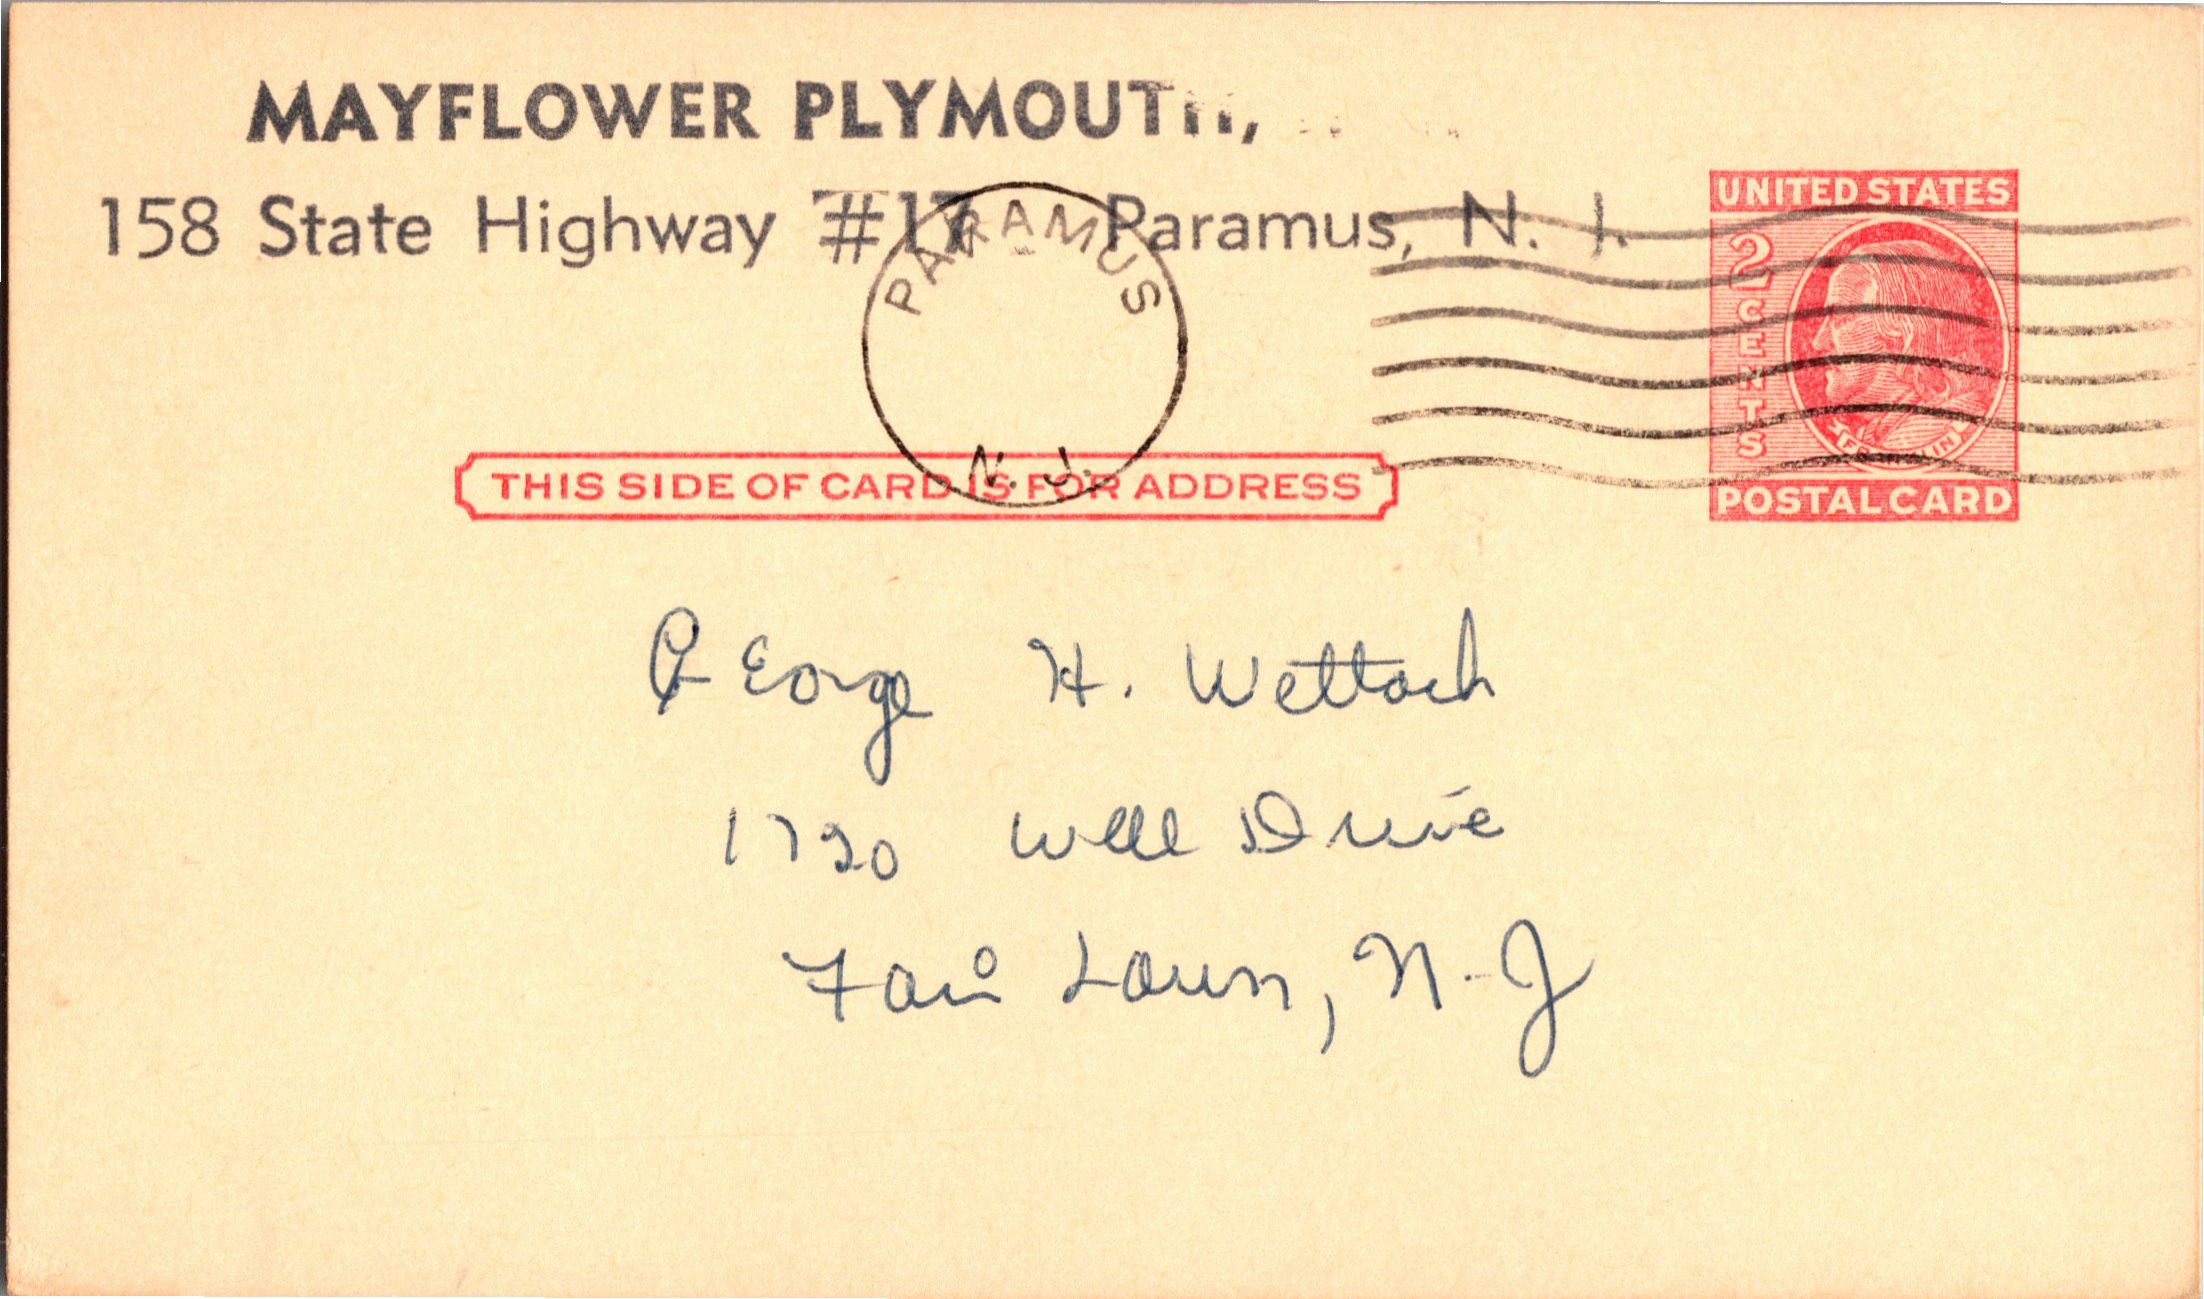 MAYFLOWER PLYMOUTH,
158 State Highway #17 Paramus, N. J.
PARAMUS
N. J.
UNITED STATES
2 CENTS
FRANKLIN
POSTAL CARD
THIS SIDE OF CARD IS FOR ADDRESS
George H. Wettach
1720 Well Drive
Fair Lawn, N-J